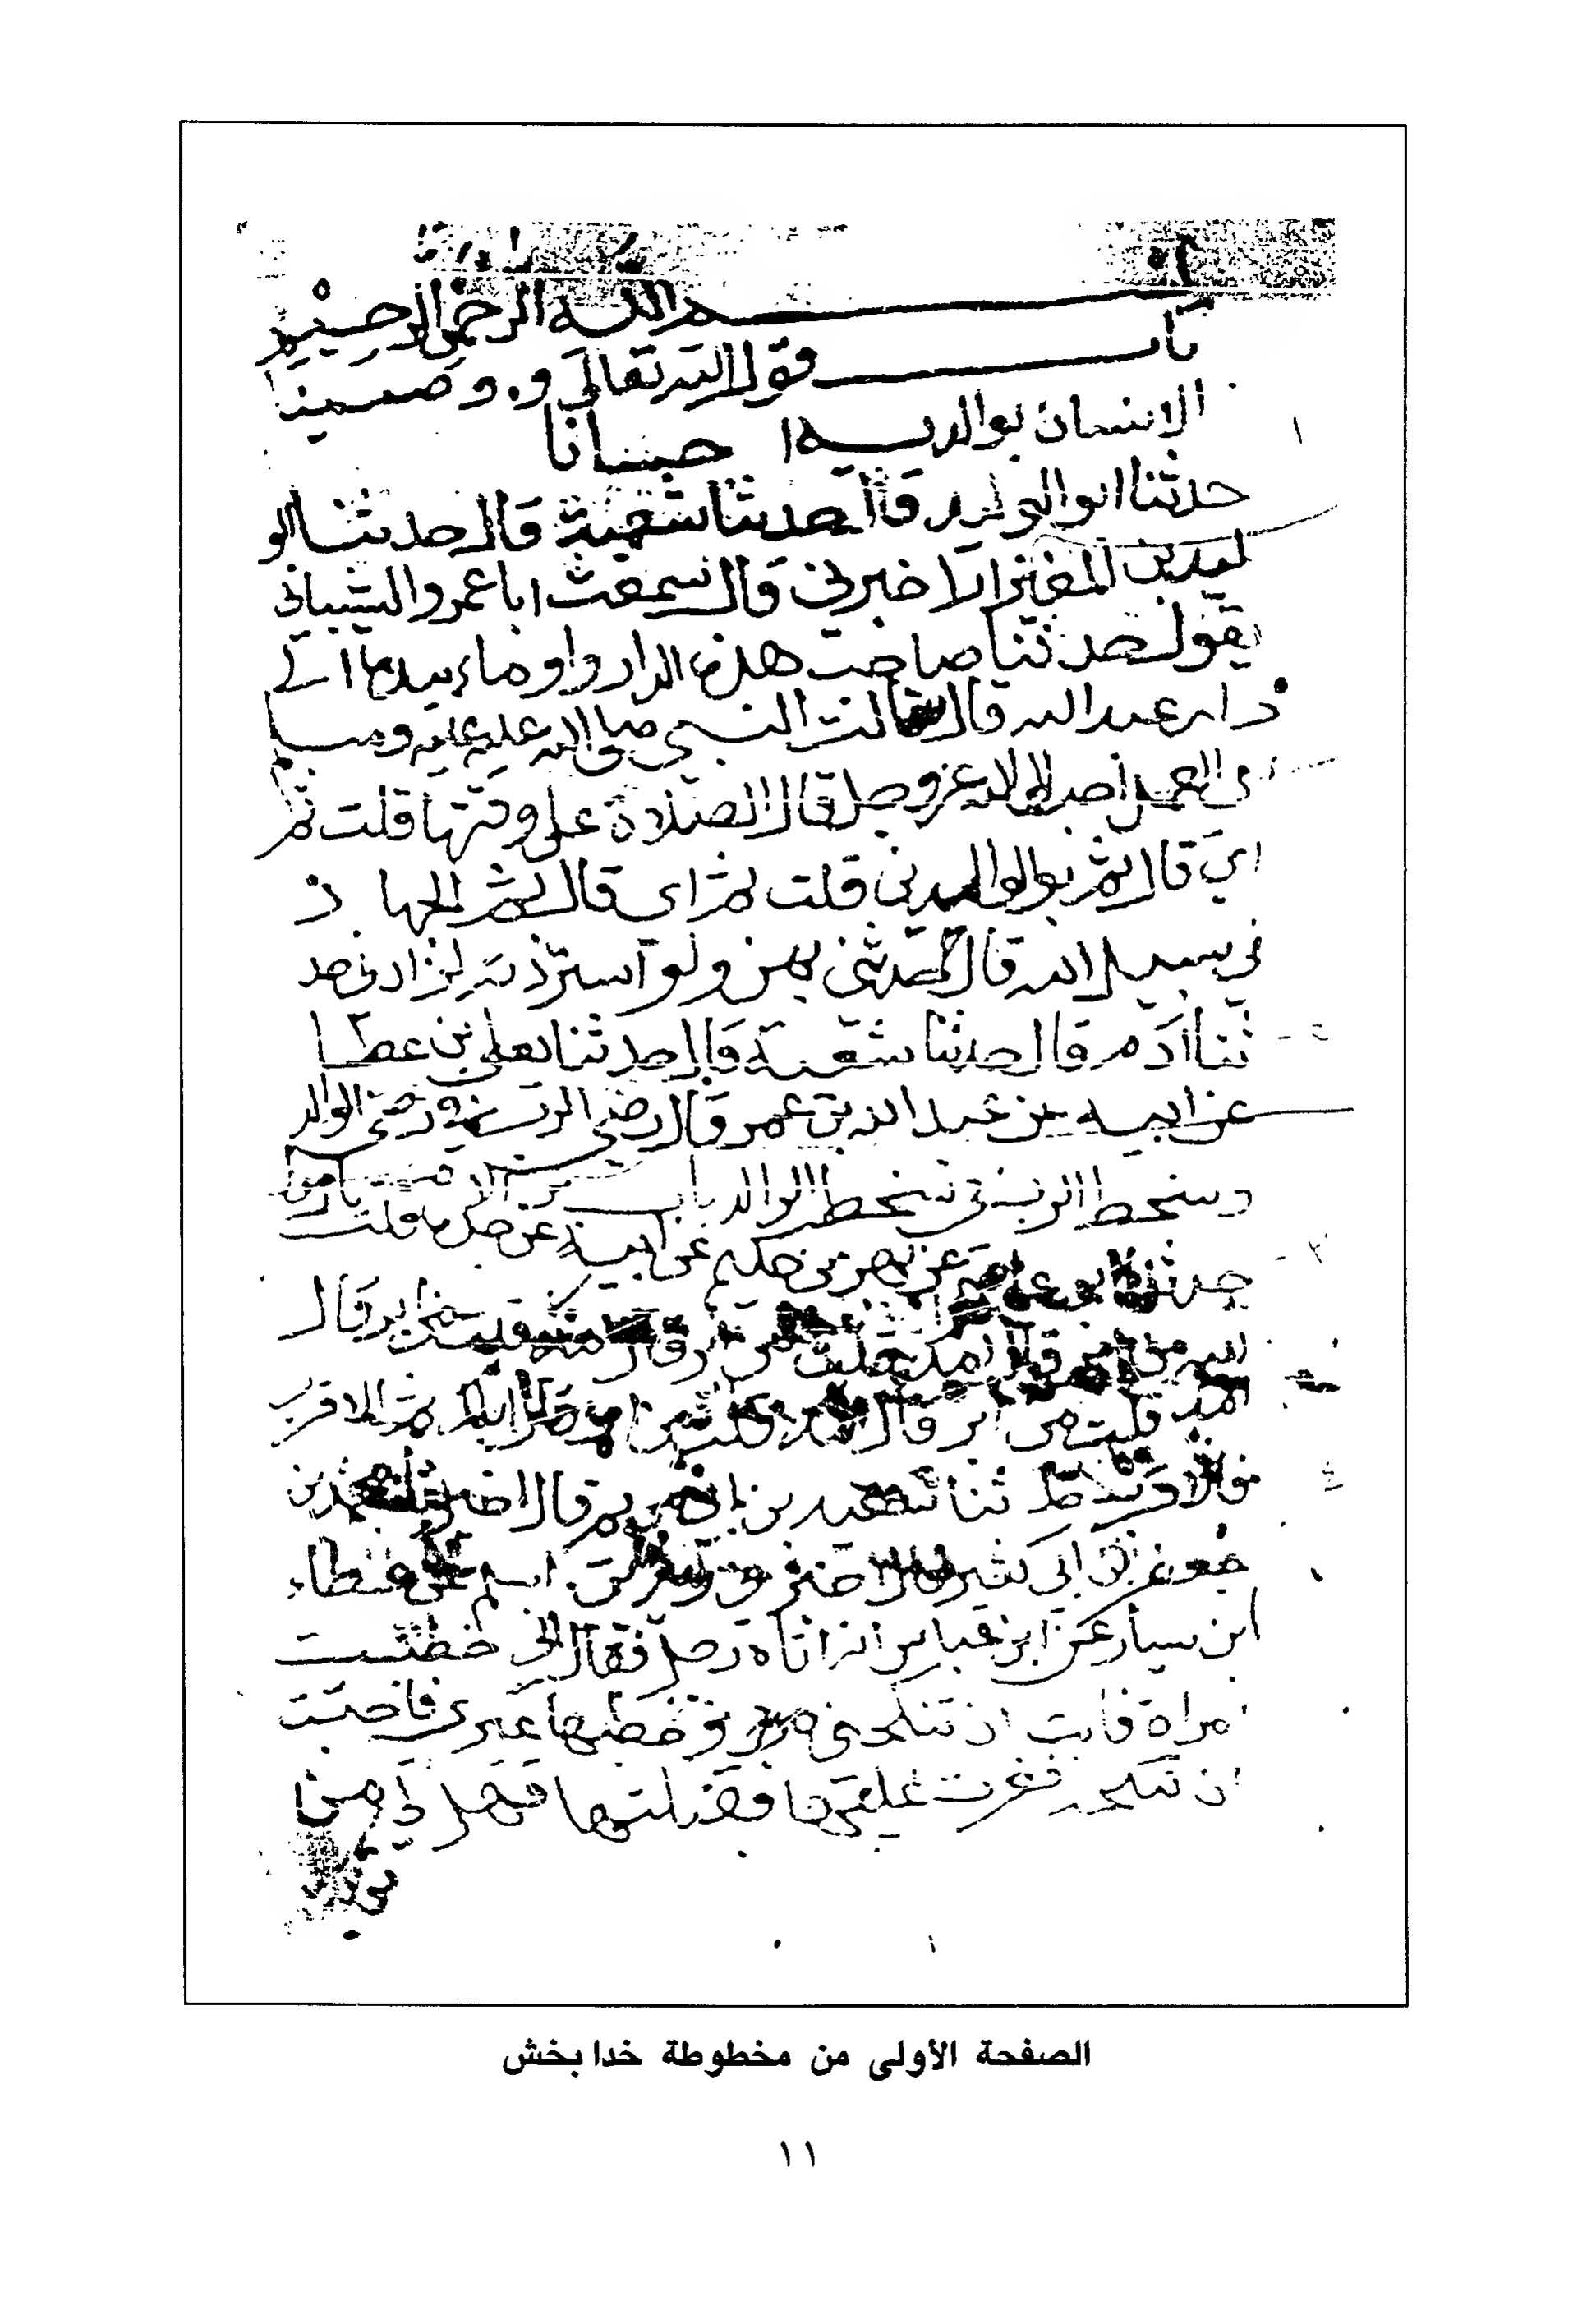 بسم الله الرحمن الرحيم
باب قول الله تعالى ووصينا
الانسان بوالديه حسنانا
حدثنا ابو الوليد قال حدثنا شعبة قال حدثنا الو
ليد بن العيزار اخبرني قال سمعت ابا عمرو الشيباني
يقول حدثنا صاحب هذه الدار واوماء بيده الى
دار عبد الله قال سالت النبي صلى الله عليه وسلم
اي العمل احب الى الله عز وجل قال الصلاة على وقتها قلت ثم
اي قال ثم بر الوالدين قلت ثم اي قال ثم الجهاد
في سبيل الله قال حدثني بهن ولو استزدته لزادني حد
ثنا ادم قال حدثنا شعبة قال حدثنا يعلى بن عطا
عن ابيه عن عبد الله بن عمر قال رضى الرب في رضى الوالد
وسخط الرب في سخط الوالد باب بر الام
حدثنا ابو عاصم عن بهز بن حكيم عن ابيه عن جده قلت يا رسول
الله من ابر قال امك قلت من ابر قال امك قلت من ابر قال
امك قلت من ابر قال اباك ثم الاقرب
فالاقرب حد ثنا سعيد بن ابي مريم قال اخبرنا محمد بن
جعفر بن ابي كثير قال اخبرني زيد بن اسلم عن عطاء
ابن يسار عن ابن عباس انه اتاه رجل فقال اني خطبت
امراة فابت ان تنكحني وخطبها غيري فاحبت
ان تنكحه فغرت عليها فقتلتها فهل لي من
توبة
الصفحة الأولى من مخطوطة خدا بخش
١١